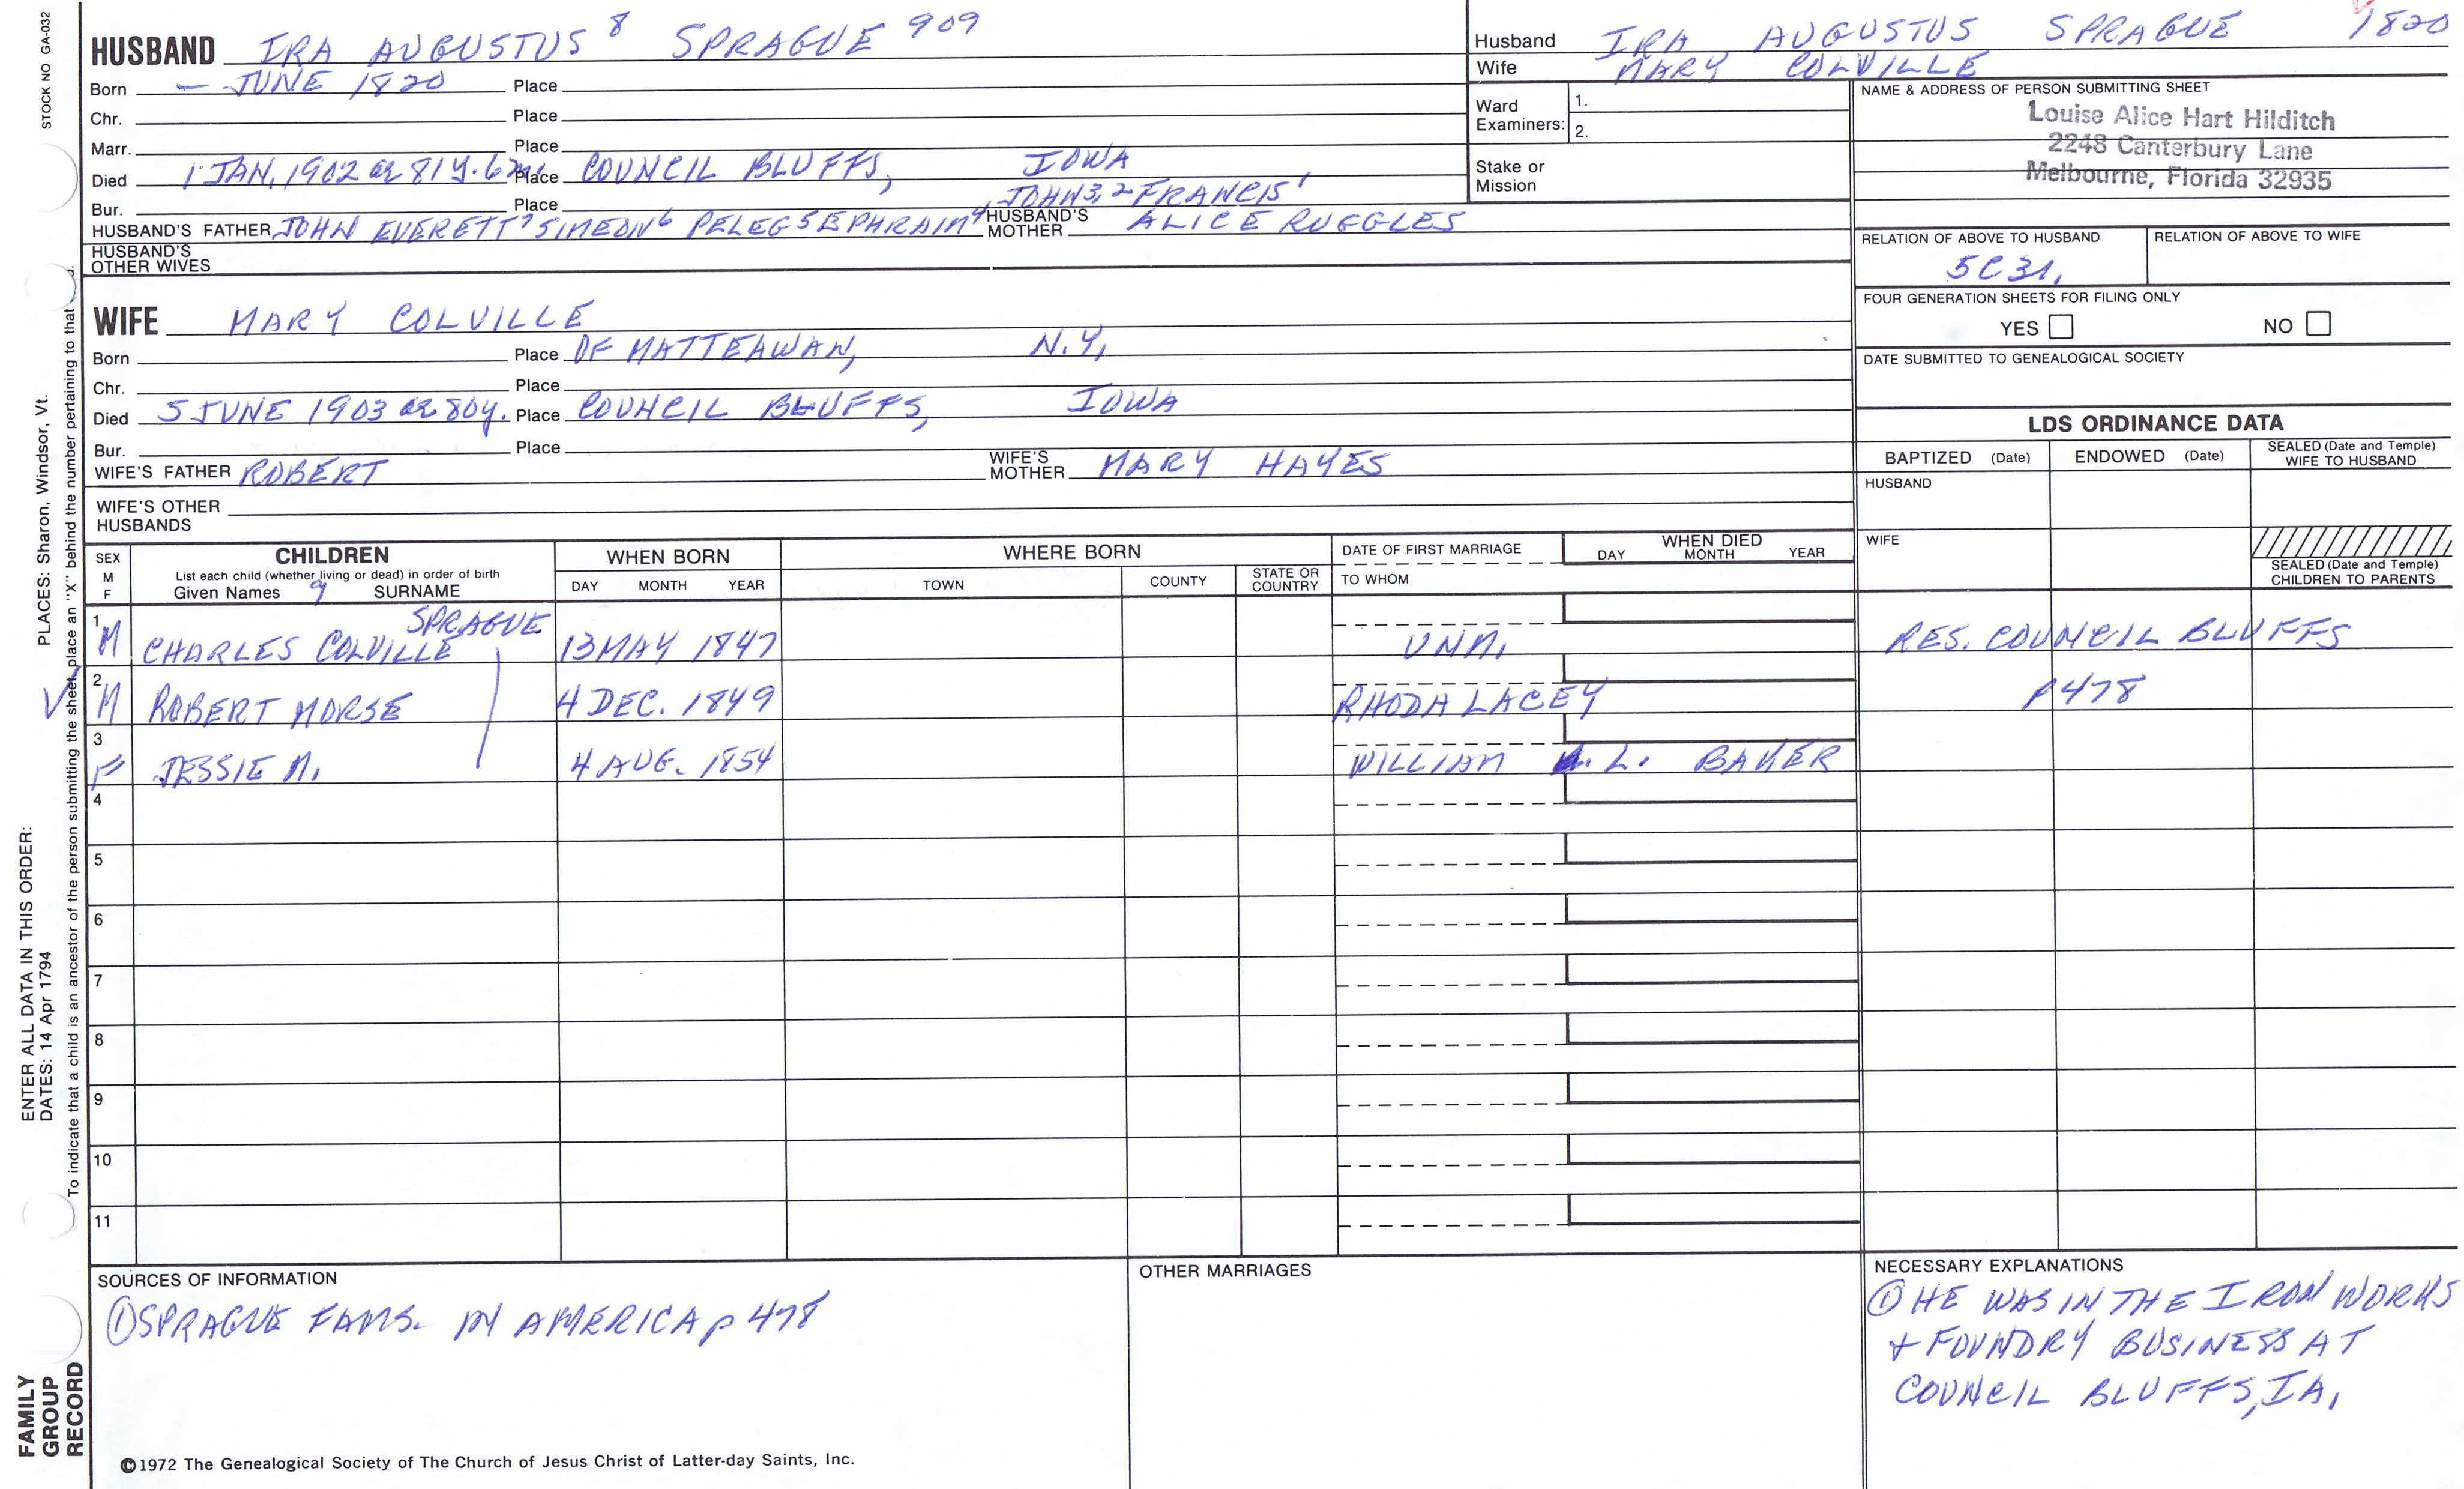 STOCK NO GA-032
HUSBAND IRA AUGUSTUS 8 SPRAGUE 909
Born — JUNE 1820 Place
Chr. Place
Marr. Place
Died 1 JAN, 1902 ae 81 y. 6 m. Place COUNCIL BLUFFS, IOWA
Bur. Place
JOHN 3, 2 FRANCIS 1
HUSBAND'S FATHER JOHN EVERETT 7 SIMEON 6 PELEG 5 EPHRAIM 4 HUSBAND'S MOTHER ALICE RUGGLES
HUSBAND'S OTHER WIVES
WIFE MARY COLVILLE
Born Place OF MATTEAWAN, N.Y.
Chr. Place
Died 5 JUNE 1903 ae 80y. Place COUNCIL BLUFFS, IOWA
Bur. Place
WIFE'S FATHER ROBERT WIFE'S MOTHER MARY HAYES
WIFE'S OTHER HUSBANDS
Husband IRA AUGUSTUS SPRAGUE 1820
Wife MARY COLVILLE
Ward Examiners: 1.
2.
Stake or Mission
NAME & ADDRESS OF PERSON SUBMITTING SHEET
Louise Alice Hart Hilditch
2248 Canterbury Lane
Melbourne, Florida 32935
RELATION OF ABOVE TO HUSBAND RELATION OF ABOVE TO WIFE
5C 3r.
FOUR GENERATION SHEETS FOR FILING ONLY
YES NO
DATE SUBMITTED TO GENEALOGICAL SOCIETY
LDS ORDINANCE DATA
BAPTIZED (Date) ENDOWED (Date) SEALED (Date and Temple) WIFE TO HUSBAND
HUSBAND
WIFE
SEALED (Date and Temple) CHILDREN TO PARENTS
SEX M F CHILDREN WHEN BORN WHERE BORN DATE OF FIRST MARRIAGE WHEN DIED
List each child (whether living or dead) in order of birth
Given Names 9 SURNAME DAY MONTH YEAR TOWN COUNTY STATE OR COUNTRY TO WHOM DAY MONTH YEAR
1 M CHARLES COLVILLE SPRAGUE 13 MAY 1847 UNM. RES. COUNCIL BLUFFS
2 M ROBERT MORSE 4 DEC. 1849 RHODA LACEY p 478
3 F JESSIE M. 4 AUG. 1854 WILLIAM L. BAKER
4
5
6
7
8
9
10
11
SOURCES OF INFORMATION
① SPRAGUE FAMS. IN AMERICA p 478
OTHER MARRIAGES
NECESSARY EXPLANATIONS
① HE WAS IN THE IRON WORKS
+ FOUNDRY BUSINESS AT
COUNCIL BLUFFS, IA.
©1972 The Genealogical Society of The Church of Jesus Christ of Latter-day Saints, Inc.
FAMILY GROUP RECORD
ENTER ALL DATA IN THIS ORDER:
DATES: 14 Apr 1794 PLACES: Sharon, Windsor, Vt.
To indicate that a child is an ancestor of the person submitting the sheet, place an "X" behind the number pertaining to that